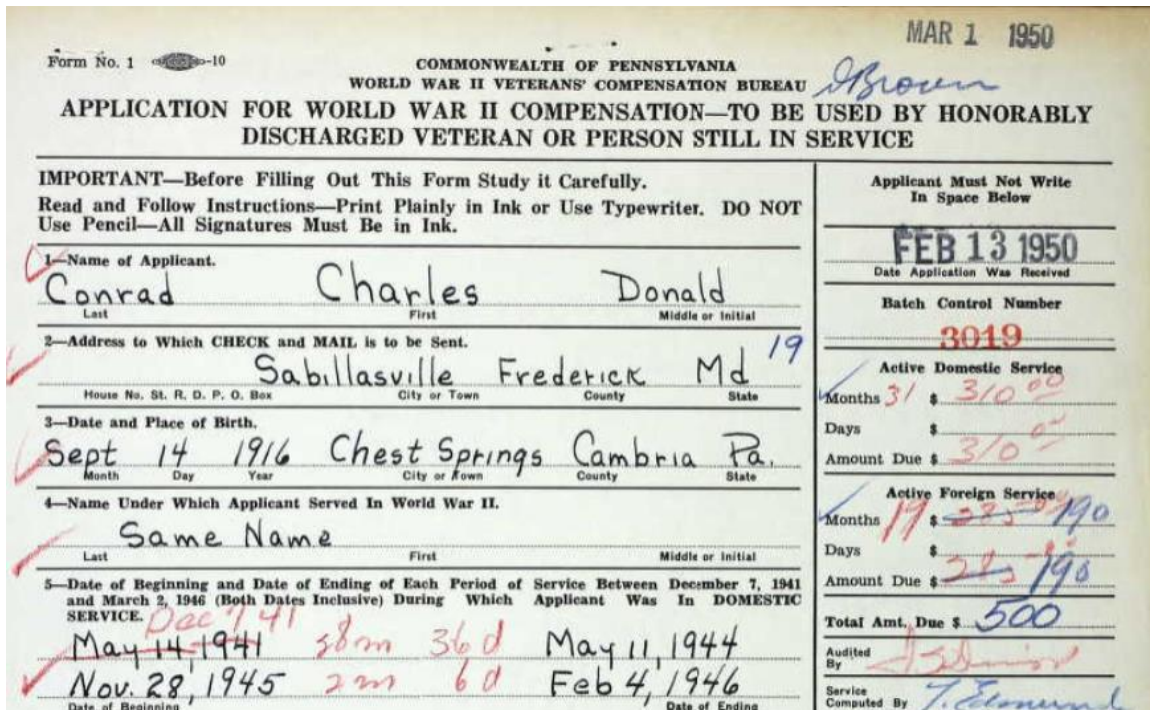 MAR 1 1950
Form No. 1 -10
COMMONWEALTH OF PENNSYLVANIA
WORLD WAR II VETERANS' COMPENSATION BUREAU
Brown
APPLICATION FOR WORLD WAR II COMPENSATION—TO BE USED BY HONORABLY
DISCHARGED VETERAN OR PERSON STILL IN SERVICE
IMPORTANT—Before Filling Out This Form Study it Carefully.
Read and Follow Instructions—Print Plainly in Ink or Use Typewriter. DO NOT
Use Pencil—All Signatures Must Be in Ink.
1—Name of Applicant.
Conrad Charles Donald
Last First Middle or Initial
2—Address to Which CHECK and MAIL is to be Sent.
19
Sabillasville Frederick Md
House No. St. R. D. P. O. Box City or Town County State
3—Date and Place of Birth.
Sept 14 1916 Chest Springs Cambria Pa.
Month Day Year City or Town County State
4—Name Under Which Applicant Served In World War II.
Same Name
Last First Middle or Initial
5—Date of Beginning and Date of Ending of Each Period of Service Between December 7, 1941
and March 2, 1946 (Both Dates Inclusive) During Which Applicant Was In DOMESTIC
SERVICE.
Dec 7 41
May 14, 1941 28m 36d May 11, 1944
Nov. 28, 1945 2m 6d Feb 4, 1946
Date of Beginning Date of Ending
Applicant Must Not Write
In Space Below
FEB 13 1950
Date Application Was Received
Batch Control Number
3019
Active Domestic Service
Months 31 $ 310 00
Days $
Amount Due $ 310 00
Active Foreign Service
Months 19 $ 285 00 190
Days $
Amount Due $ 285 190
Total Amt. Due $ 500
Audited
By
Service
Computed By T. Edmund